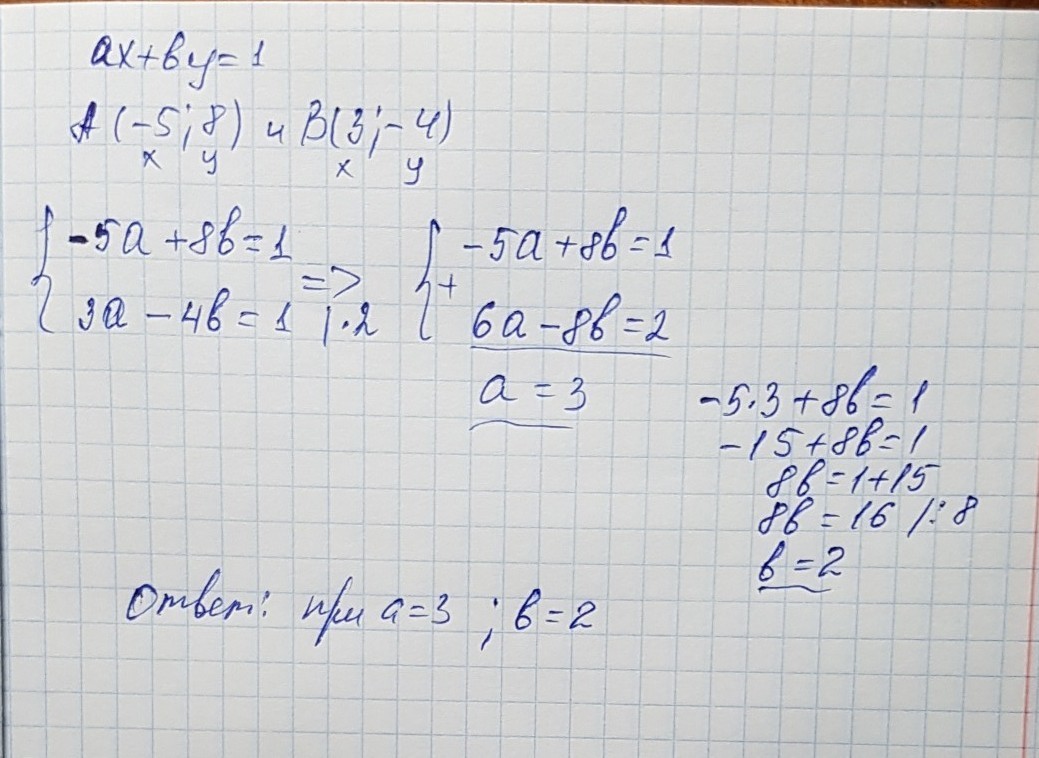 ax+by=1
A(-5;8) и B(3;-4)
x y x y
-5a+8b=1 => -5a+8b=1
3a-4b=1 |·2 + 6a-8b=2
a=3
-5·3+8b=1
-15+8b=1
8b=1+15
8b=16 /:8
b=2
Ответ: при a=3 ; b=2